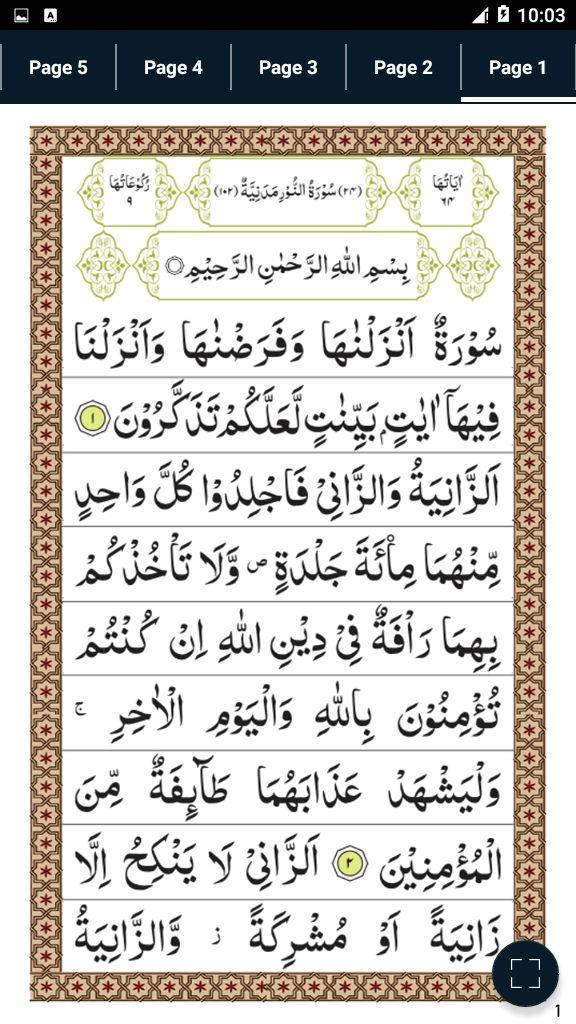 10:03
Page 5 Page 4 Page 3 Page 2 Page 1
اٰیَاتُهَا ٦٤ (٢٤) سُوْرَةُ النُّوْرِ مَدَنِيَّةٌ (١٠٢) رُكُوْعَاتُهَا ٩
بِسْمِ اللّٰهِ الرَّحْمٰنِ الرَّحِيْمِ
سُوْرَةٌ اَنْزَلْنٰهَا وَفَرَضْنٰهَا وَاَنْزَلْنَا
فِيْهَاۤ اٰيٰتٍۭ بَيِّنٰتٍ لَّعَلَّكُمْ تَذَكَّرُوْنَ ١
اَلزَّانِيَةُ وَالزَّانِيْ فَاجْلِدُوْا كُلَّ وَاحِدٍ
مِّنْهُمَا مِائَةَ جَلْدَةٍ ص وَّلَا تَاْخُذْكُمْ
بِهِمَا رَاْفَةٌ فِيْ دِيْنِ اللّٰهِ اِنْ كُنْتُمْ
تُؤْمِنُوْنَ بِاللّٰهِ وَالْيَوْمِ الْاٰخِرِ ج
وَلْيَشْهَدْ عَذَابَهُمَا طَآىِٕفَةٌ مِّنَ
الْمُؤْمِنِيْنَ ٢ اَلزَّانِيْ لَا يَنْكِحُ اِلَّا
زَانِيَةً اَوْ مُشْرِكَةً ز وَّالزَّانِيَةُ
1